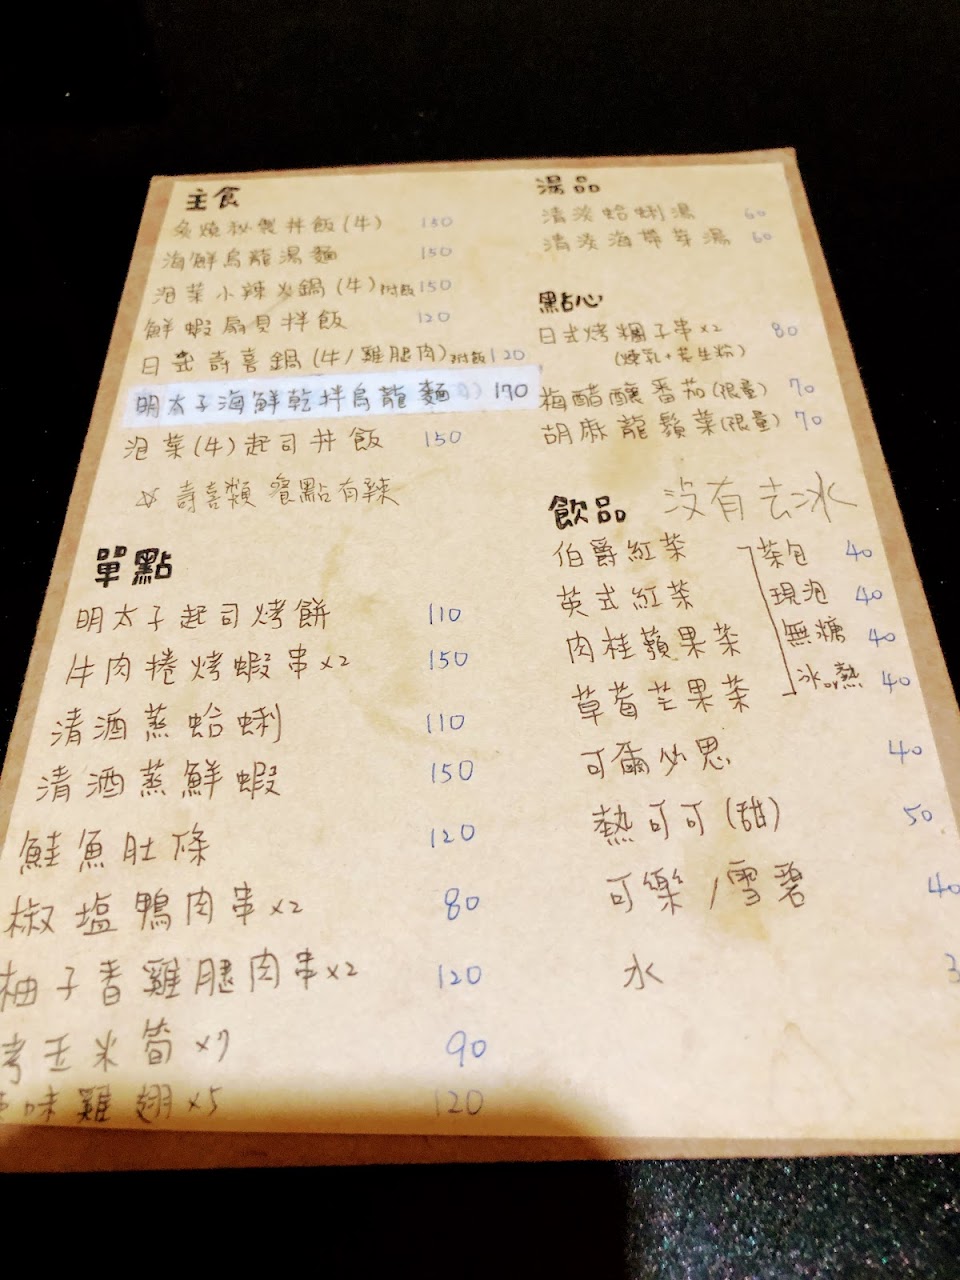 主食
炙燒秘製丼飯(牛) 150
海鮮烏龍湯麵 150
泡菜小辣火鍋(牛)附飯 150
鮮蝦扇貝拌飯 120
日式壽喜鍋(牛/雞腿肉)附飯 120
明太子海鮮乾拌烏龍麵 170
泡菜(牛)起司丼飯 150
☆ 壽喜類 餐點有辣
單點
明太子起司烤餅 110
牛肉捲烤蝦串x2 150
清酒蒸蛤蜊 110
清酒蒸鮮蝦 150
鮭魚肚條 120
椒塩鴨肉串x2 80
柚子香雞腿肉串x2 120
烤玉米筍x7 90
味雞翅x5 120
湯品
清淡蛤蜊湯 60
清淡海帶芽湯 60
點心
日式烤糰子串x2 80
(煉乳+花生粉)
梅醋釀番茄(限量) 70
胡麻龍鬚菜(限量) 70
飲品 沒有去冰
伯爵紅茶 茶包 40
英式紅茶 現泡 40
肉桂蘋果茶 無糖 40
草莓芒果茶 冰or熱 40
可爾必思 40
熱可可(甜) 50
可樂/雪碧 40
水